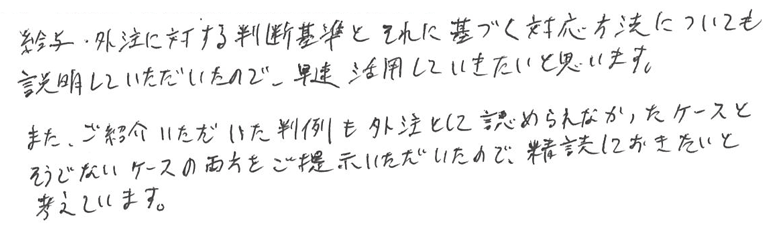 給与・外注に対する判断基準と それに基づく対応方法についても
説明していただいたので、早速 活用していきたいと思います。
また、ご紹介いただいた判例も外注として認められなかったケースと
そうでないケースの両方をご提示いただいたので、精読しておきたいと
考えています。